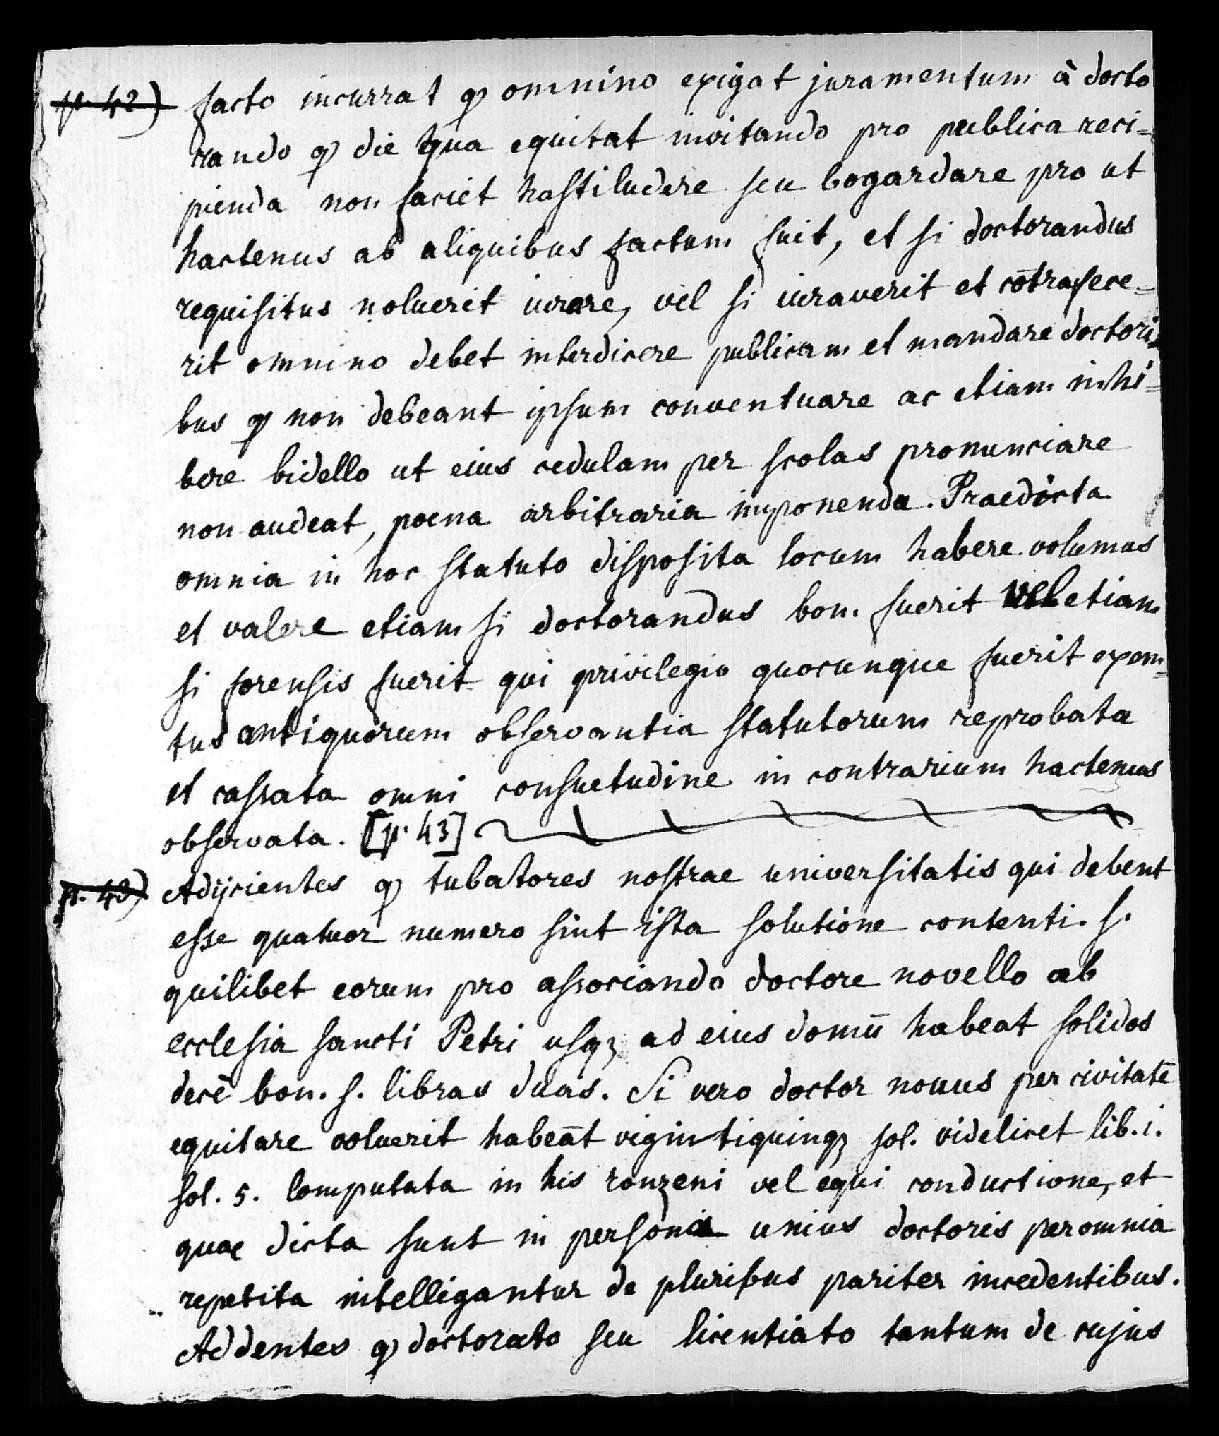 p. 42) facto incurrat ꝙ omnino exigat juramentum à docto
rando ꝙ die qua equitat invitando pro publica reci-
pienda non faciet hastiludere seu bogardare pro ut
hactenus ab aliquibus factum fuit, et si doctorandus
requisitus noluerit iurare, vel si iuraverit et cōtrafece-
rit omnino debet interdicere publicam et mandare doctori-
bus ꝙ non debeant ipsum conventuare ac etiam inhi-
bere bidello ut eius cedulam per scolas pronunciare
non audeat, poena arbitraria imponenda. Praedicta
omnia in hoc statuto disposita locum habere volumus
et valere etiam si doctorandus bon. fuerit vel etiam
si forensis fuerit qui privilegio quocunque fuerit exem-
tus antiquorum observantia statutorum reprobata
et cassata omni consuetudine in contrarium hactenus
observata. [p. 43]
p. 43) Adijcientes ꝙ tubatores nostrae universitatis qui debent
esse quatuor numero sint ista solutione contenti. s.
quilibet eorum pro associando doctore novello ab
ecclesia sancti Petri usqꝫ ad eius domū habeat solidos
decē bon. s. libras duas. Si vero doctor nouus per civitatē
equitare voluerit habeāt vigintiquinqꝫ sol. videlicet lib. i.
sol. 5. computata in his ronzeni vel equi conductione, et
quae dicta sunt in persona unius doctoris per omnia
repetita intelligantur de pluribus pariter incedentibus.
Addentes ꝙ doctorato seu licentiato tantum de cujus